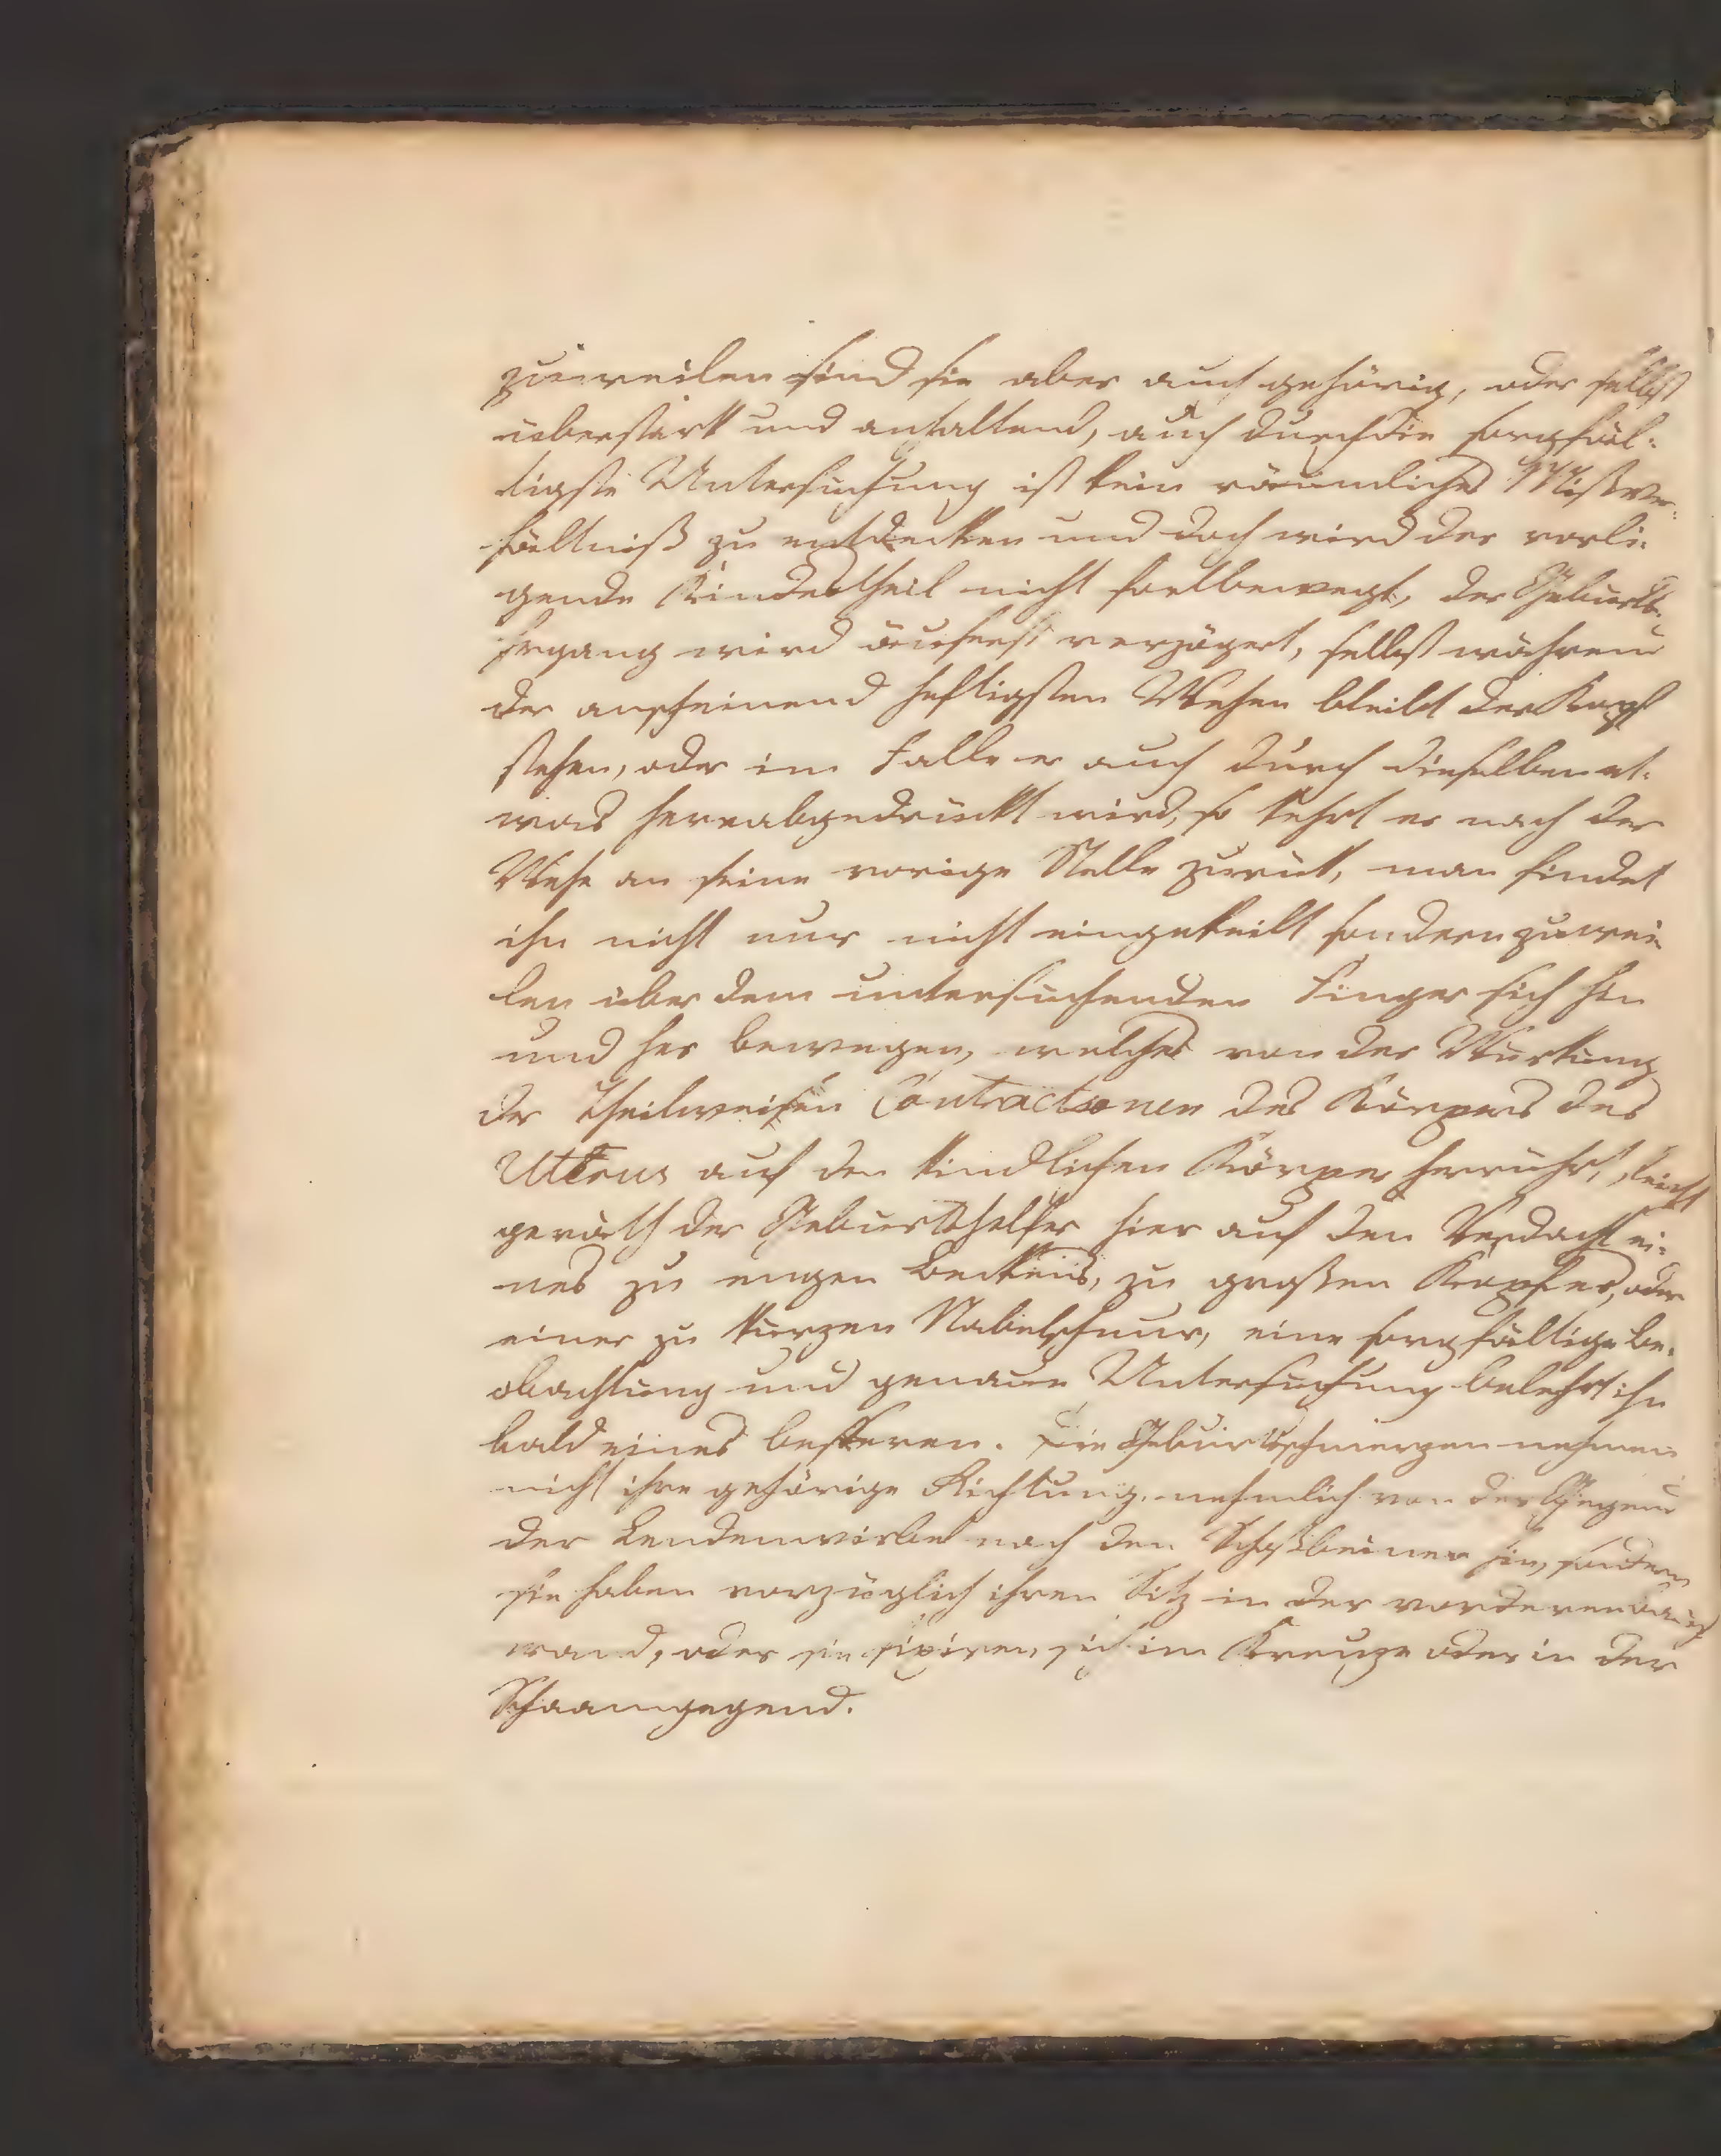 zuweilen sind sie aber auch gehörig, oder selbst
ueberstark und anhaltend, auch durch die sorgfäl-
tigste Untersuchung ist kein räumliches Mißver-
hältniß zu entdecken und doch wird der vorlie-
gende Kindestheil nicht fortbewegt, der Geburts-
hergang wird äuserst verzögert, selbst während
der anscheinend heftigsten Wehen bleibt der Kopf
stehen, oder im Falle er auch durch dieselben et-
was herabgedrückt wird, so kehrt er nach der
Wehe an seine vorige Stelle zurük, man findet
ihn nicht nur nicht eingekeilt sondern zuwei-
len über dem untersuchenden Finger sich hin
und her bewegen, welches von der Würkung
der theilweisen Contractionen des Körpers des
Uterus auf den kindlichen Körper herrührt, leicht
geräth der Geburtshelfer hier auf den Verdacht ei-
nes zu engen Beckens, zu großen Kopfes, oder
einer zu kurzen Nabelschnur, eine sorgfältige Be-
obachtung und genaue Untersuchung belehrt ihn
bald eines besseren. Die Geburtsschmerzen nehmen
nicht ihre gehörige Richtung, nehmlich von der Gegend
der Lendenwirbel nach den Schoßbeinen hin, sondern
sie haben vorzüglich ihren Sitz in der vorderen Bauch
wand, oder sie fixiren sich im Kreuze oder in der
Schaamgegend.